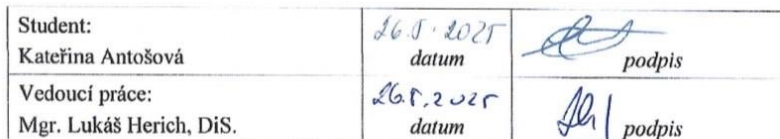 Student:
Kateřina Antošová
26.5.2025
datum
podpis
Vedoucí práce:
Mgr. Lukáš Herich, DiS.
26.5.2025
datum
podpis